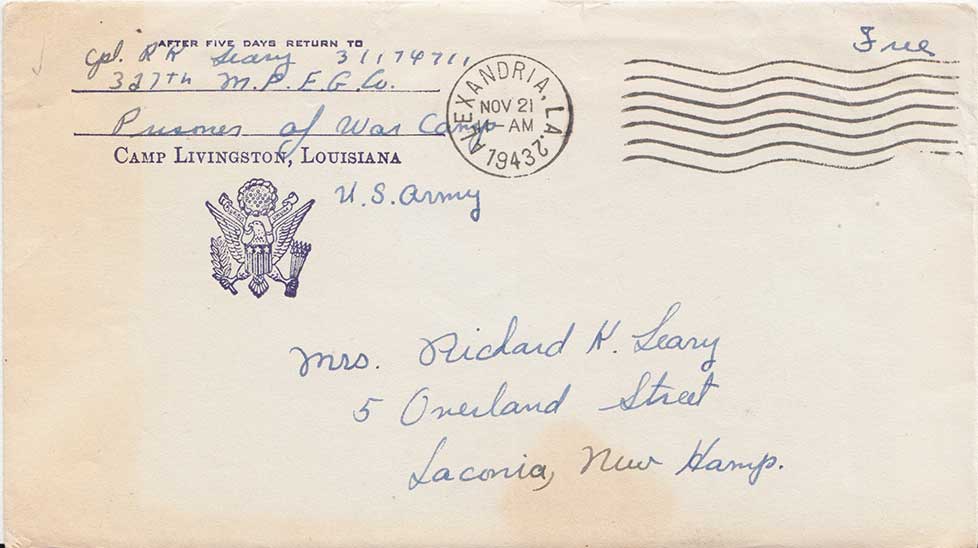 AFTER FIVE DAYS RETURN TO
Cpl. R K Seary 31174711
327th M.P.E.G. Co.
Prisoner of War Camp
CAMP LIVINGSTON, LOUISIANA
U.S. Army
ALEXANDRIA, LA.
NOV 21
AM
1943
2
Free
Mrs. Richard K. Seary
5 Overland Street
Laconia, New Hamp.